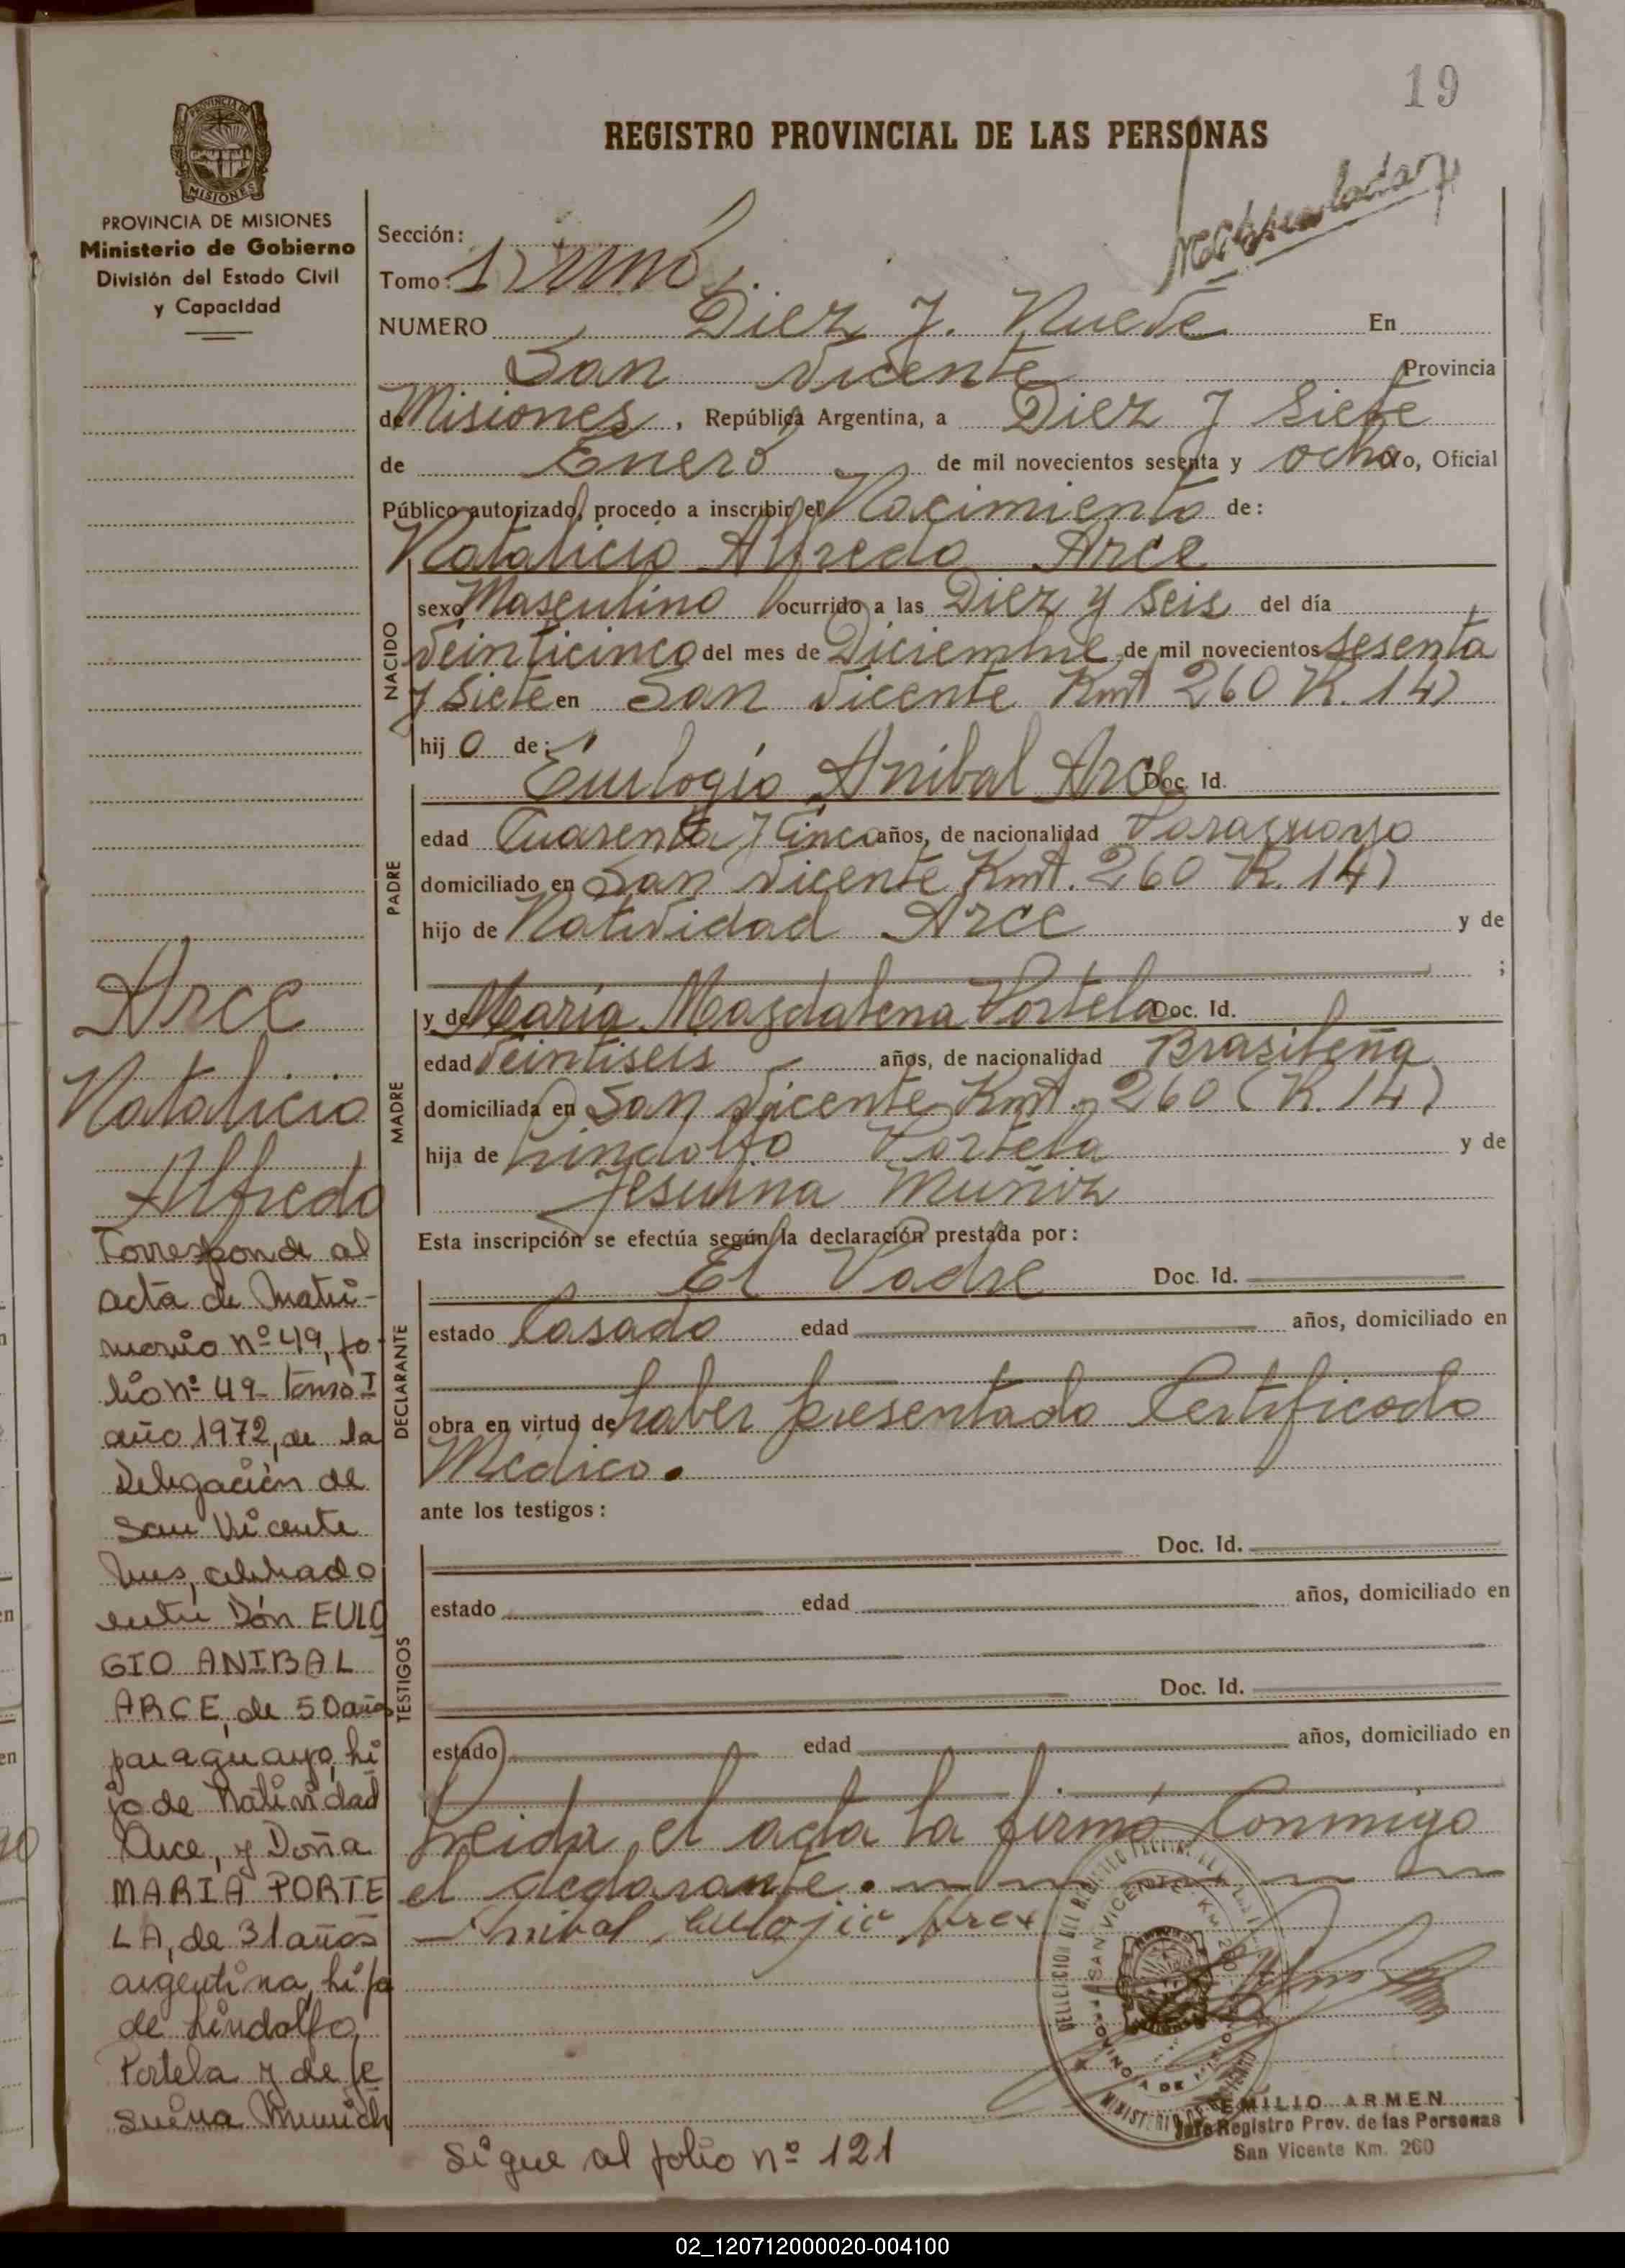 19
REGISTRO PROVINCIAL DE LAS PERSONAS
PROVINCIA DE
MISIONES
PROVINCIA DE MISIONES
Ministerio de Gobierno
División del Estado Civil
y Capacidad
Sección:
Tomo: 1
NUMERO Diez y Nueve En
San Vicente Provincia
de Misiones, República Argentina, a Diez y Siete
de Enero de mil novecientos sesenta y ocho yo, Oficial
Público autorizado, procedo a inscribir el Nacimiento de:
Natalicio Alfredo Arce
NACIDO
sexo Masculino ocurrido a las Diez y Seis del día
Veinticinco del mes de Diciembre de mil novecientos Sesenta
y Siete en San Vicente Kmt 260 R. 14)
hijo de:
PADRE
Eulogio Anibal Arce Doc. Id.
edad Cuarenta y Cinco años, de nacionalidad Paraguaya
domiciliado en San Vicente Kmt. 260 R. 14)
hijo de Natividad Arce y de
;
MADRE
y de María Magdalena Portela Doc. Id.
edad Veintiseis años, de nacionalidad Brasileña
domiciliada en San Vicente Kmt. 260 (R. 14)
hija de Lindolfo Portela y de
Jesuina Muñiz
Esta inscripción se efectúa según la declaración prestada por:
DECLARANTE
El Padre Doc. Id.
estado Casado edad años, domiciliado en
obra en virtud de haber presentado Certificado
Médico.
ante los testigos:
TESTIGOS
Doc. Id.
estado edad años, domiciliado en
Doc. Id.
estado edad años, domiciliado en
Leida el acta la firmó Conmigo
el declarante.
Anibal Eulojio Arce
Arce
Natalicio
Alfredo
Corresponde al
acta de Matri-
monio nº 49, fo-
lio nº 49 tomo I
año 1972, de la
Delegación de
San Vicente
Mnes, celebrado
entre Dón EULO
GIO ANIBAL
ARCE, de 50 años
paraguayo, hi
jo de Natividad
Arce, y Doña
MARIA PORTE
LA, de 31 años
argentina, hija
de Lindolfo
Portela y de Je
suina Munich
Sigue al folio nº 121
SAN VICENTE
PROVINCIA DE
EMILIO ARMEN
Jefe Registro Prov. de las Personas
San Vicente Km. 260
02_120712000020-004100